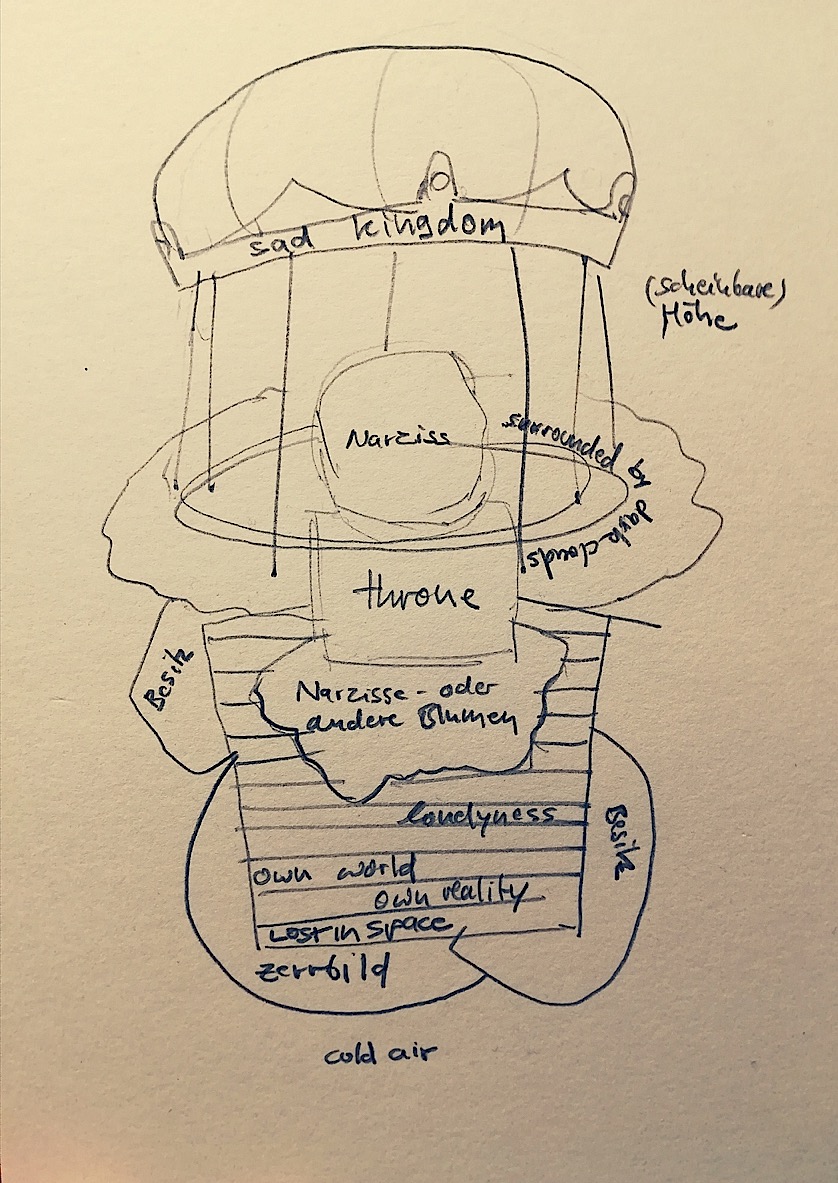 sad kingdom
(scheinbare)
Höhe
Narziss
surrounded by dark clouds!
throne
Besitz
Narzisse - oder
andere Blumen
londyness
Besitz
own world
own reality
Lost in space
zerrbild
cold air